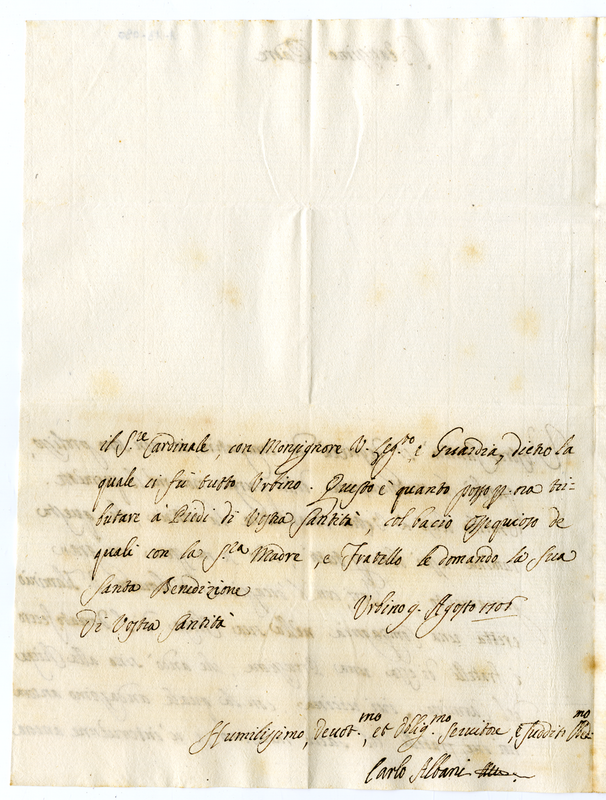 il S.re Cardinale con Monsignore V. Leg.to e Guardia, dietro la
quale ci fù tutto Urbino. Questo è quanto posso p. ora tri=
butare a Piedi di Vostra Santità col bacio ossequioso de
quali con la S.ra Madre, e Fratello le domando la Sua
Santa Benedizione
Urbino 9. Agosto 1706
Di Vostra Santità
Humilissimo, Devot.mo, et Oblig.mo Servitore, e Suddito
Carlo Albani